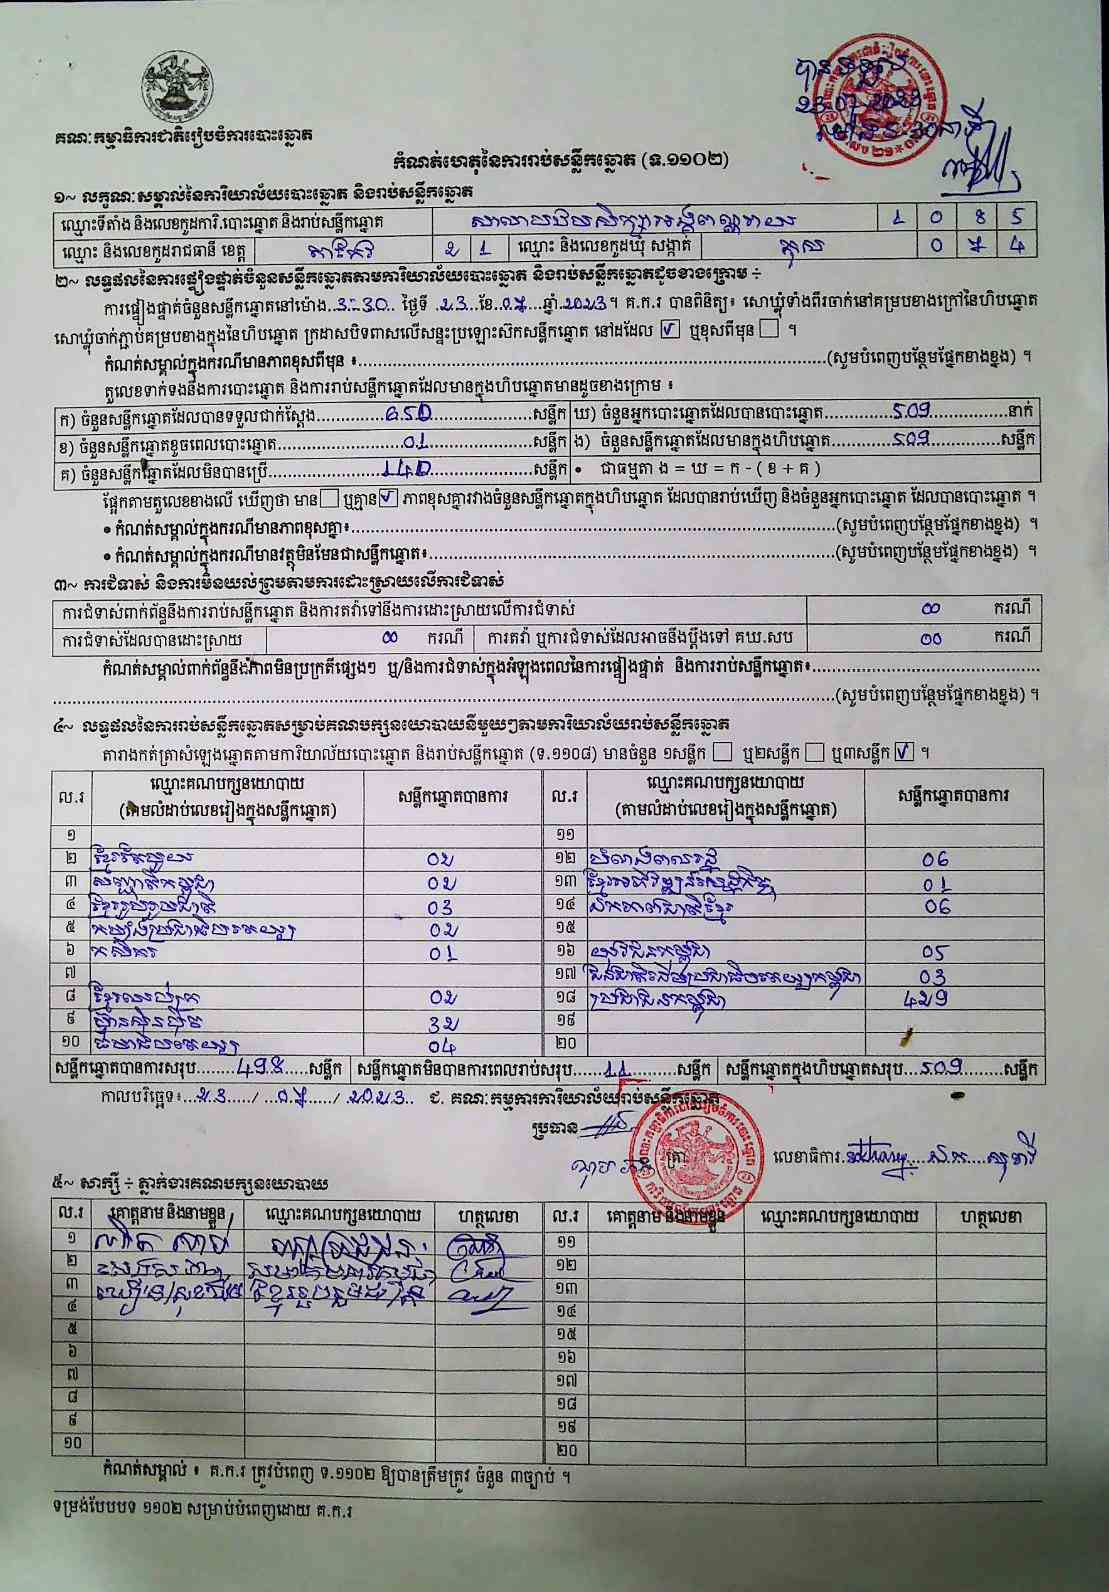 គណៈកម្មាធិការជាតិរៀបចំការបោះឆ្នោត
បានទទួល
23.07.2023
កំណត់ហេតុនៃការរាប់សន្លឹកឆ្នោត (ទ.១១០២)
១~ លក្ខណៈសម្គាល់នៃការិយាល័យបោះឆ្នោត និងរាប់សន្លឹកឆ្នោត
ឈ្មោះទីតាំង និងលេខកូដការិ.បោះឆ្នោត និងរាប់សន្លឹកឆ្នោត 1 0 8 5
ឈ្មោះ និងលេខកូដរាជធានី ខេត្ត តាកែវ 2 1 ឈ្មោះ និងលេខកូដឃុំ សង្កាត់ គុស 0 7 4
២~ លទ្ធផលនៃការផ្ទៀងផ្ទាត់ចំនួនសន្លឹកឆ្នោតតាមការិយាល័យបោះឆ្នោត និងរាប់សន្លឹកឆ្នោតដូចខាងក្រោម ÷
ការផ្ទៀងផ្ទាត់ចំនួនសន្លឹកឆ្នោតនៅម៉ោង 3:30 ថ្ងៃទី 23 ខែ 07 ឆ្នាំ 2023។ គ.ក.រ បានពិនិត្យ៖ សោឃ្លុំទាំងពីរចាក់នៅគម្របខាងក្រៅនៃហិបឆ្នោត
សោឃ្លុំចាក់ភ្ជាប់គម្របខាងក្នុងនៃហិបឆ្នោត ក្រដាសបិទពាសលើសន្ទះប្រឡោះស៊កសន្លឹកឆ្នោត នៅដដែល ☑ ឬខុសពីមុន ☐ ។
កំណត់សម្គាល់ក្នុងករណីមានភាពខុសពីមុន ៖ (សូមបំពេញបន្ថែមផ្នែកខាងខ្នង) ។
តួលេខទាក់ទងនឹងការបោះឆ្នោត និងការរាប់សន្លឹកឆ្នោតដែលមានក្នុងហិបឆ្នោតមានដូចខាងក្រោម ៖
ក) ចំនួនសន្លឹកឆ្នោតដែលបានទទួលជាក់ស្តែង 650 សន្លឹក ឃ) ចំនួនអ្នកបោះឆ្នោតដែលបានបោះឆ្នោត 509 នាក់
ខ) ចំនួនសន្លឹកឆ្នោតខូចពេលបោះឆ្នោត 01 សន្លឹក ង) ចំនួនសន្លឹកឆ្នោតដែលមានក្នុងហិបឆ្នោត 509 សន្លឹក
គ) ចំនួនសន្លឹកឆ្នោតដែលមិនបានប្រើ 140 សន្លឹក • ជាធម្មតា ង = ឃ = ក - ( ខ + គ )
ផ្អែកតាមតួលេខខាងលើ ឃើញថា មាន ☐ ឬគ្មាន ☑ ភាពខុសគ្នារវាងចំនួនសន្លឹកឆ្នោតក្នុងហិបឆ្នោត ដែលបានរាប់ឃើញ និងចំនួនអ្នកបោះឆ្នោត ដែលបានបោះឆ្នោត ។
• កំណត់សម្គាល់ក្នុងករណីមានភាពខុសគ្នា៖ (សូមបំពេញបន្ថែមផ្នែកខាងខ្នង) ។
• កំណត់សម្គាល់ក្នុងករណីមានវត្ថុមិនមែនជាសន្លឹកឆ្នោត៖ (សូមបំពេញបន្ថែមផ្នែកខាងខ្នង) ។
៣~ ការជំទាស់ និងការមិនយល់ព្រមតាមការដោះស្រាយលើការជំទាស់
ការជំទាស់ពាក់ព័ន្ធនឹងការរាប់សន្លឹកឆ្នោត និងការតវ៉ាទៅនឹងការដោះស្រាយលើការជំទាស់ 00 ករណី
ការជំទាស់ដែលបានដោះស្រាយ 00 ករណី ការតវ៉ា ឬការជំទាស់ដែលអាចនឹងប្តឹងទៅ គឃ.សប 00 ករណី
កំណត់សម្គាល់ពាក់ព័ន្ធនឹងភាពមិនប្រក្រតីផ្សេងៗ ឬ/និងការជំទាស់ក្នុងអំឡុងពេលនៃការផ្ទៀងផ្ទាត់ និងការរាប់សន្លឹកឆ្នោត៖
(សូមបំពេញបន្ថែមផ្នែកខាងខ្នង) ។
៤~ លទ្ធផលនៃការរាប់សន្លឹកឆ្នោតសម្រាប់គណបក្សនយោបាយនីមួយៗតាមការិយាល័យរាប់សន្លឹកឆ្នោត
តារាងកត់ត្រាសំឡេងឆ្នោតតាមការិយាល័យបោះឆ្នោត និងរាប់សន្លឹកឆ្នោត (ទ.១១០៨) មានចំនួន ១សន្លឹក ☐ ឬ២សន្លឹក ☐ ឬ៣សន្លឹក ☑ ។
ល.រ ឈ្មោះគណបក្សនយោបាយ (តាមលំដាប់លេខរៀងក្នុងសន្លឹកឆ្នោត) សន្លឹកឆ្នោតបានការ ល.រ ឈ្មោះគណបក្សនយោបាយ (តាមលំដាប់លេខរៀងក្នុងសន្លឹកឆ្នោត) សន្លឹកឆ្នោតបានការ
១ ១១
២ 02 ១២ 06
៣ 02 ១៣ ខ្មែរអភិវឌ្ឍន៍សេដ្ឋកិច្ច 01
៤ ខ្មែររួបរួមជាតិ 03 ១៤ ឯកភាពជាតិខ្មែរ 06
៥ កម្លាំងប្រជាធិបតេយ្យ 02 ១៥
៦ កសិករ 01 ១៦ យុវជនកម្ពុជា 05
៧ ១៧ ជនជាតិដើមប្រជាធិបតេយ្យកម្ពុជា 03
៨ 02 ១៨ ប្រជាជនកម្ពុជា 429
៩ ហ្វ៊ុនស៊ិនប៉ិច 32 ១៩
១០ ធម្មាធិបតេយ្យ 04 ២០
សន្លឹកឆ្នោតបានការសរុប 498 សន្លឹក សន្លឹកឆ្នោតមិនបានការពេលរាប់សរុប 11 សន្លឹក សន្លឹកឆ្នោតក្នុងហិបឆ្នោតសរុប 509 សន្លឹក
កាលបរិច្ឆេទ៖ 23 / 07 / 2023 ជ. គណៈកម្មការការិយាល័យរាប់សន្លឹកឆ្នោត
ប្រធាន
ត្រា
លេខាធិការ
៥~ សាក្សី ÷ ភ្នាក់ងារគណបក្សនយោបាយ
ល.រ គោត្តនាម និងនាមខ្លួន ឈ្មោះគណបក្សនយោបាយ ហត្ថលេខា ល.រ គោត្តនាម និងនាមខ្លួន ឈ្មោះគណបក្សនយោបាយ ហត្ថលេខា
១ ១១
២ ១២
៣ ខ្មែររួបរួមជាតិ ១៣
៤ ១៤
៥ ១៥
៦ ១៦
៧ ១៧
៨ ១៨
៩ ១៩
១០ ២០
កំណត់សម្គាល់ ៖ គ.ក.រ ត្រូវបំពេញ ទ.១១០២ ឱ្យបានត្រឹមត្រូវ ចំនួន ៣ច្បាប់ ។
ទម្រង់បែបបទ ១១០២ សម្រាប់បំពេញដោយ គ.ក.រ